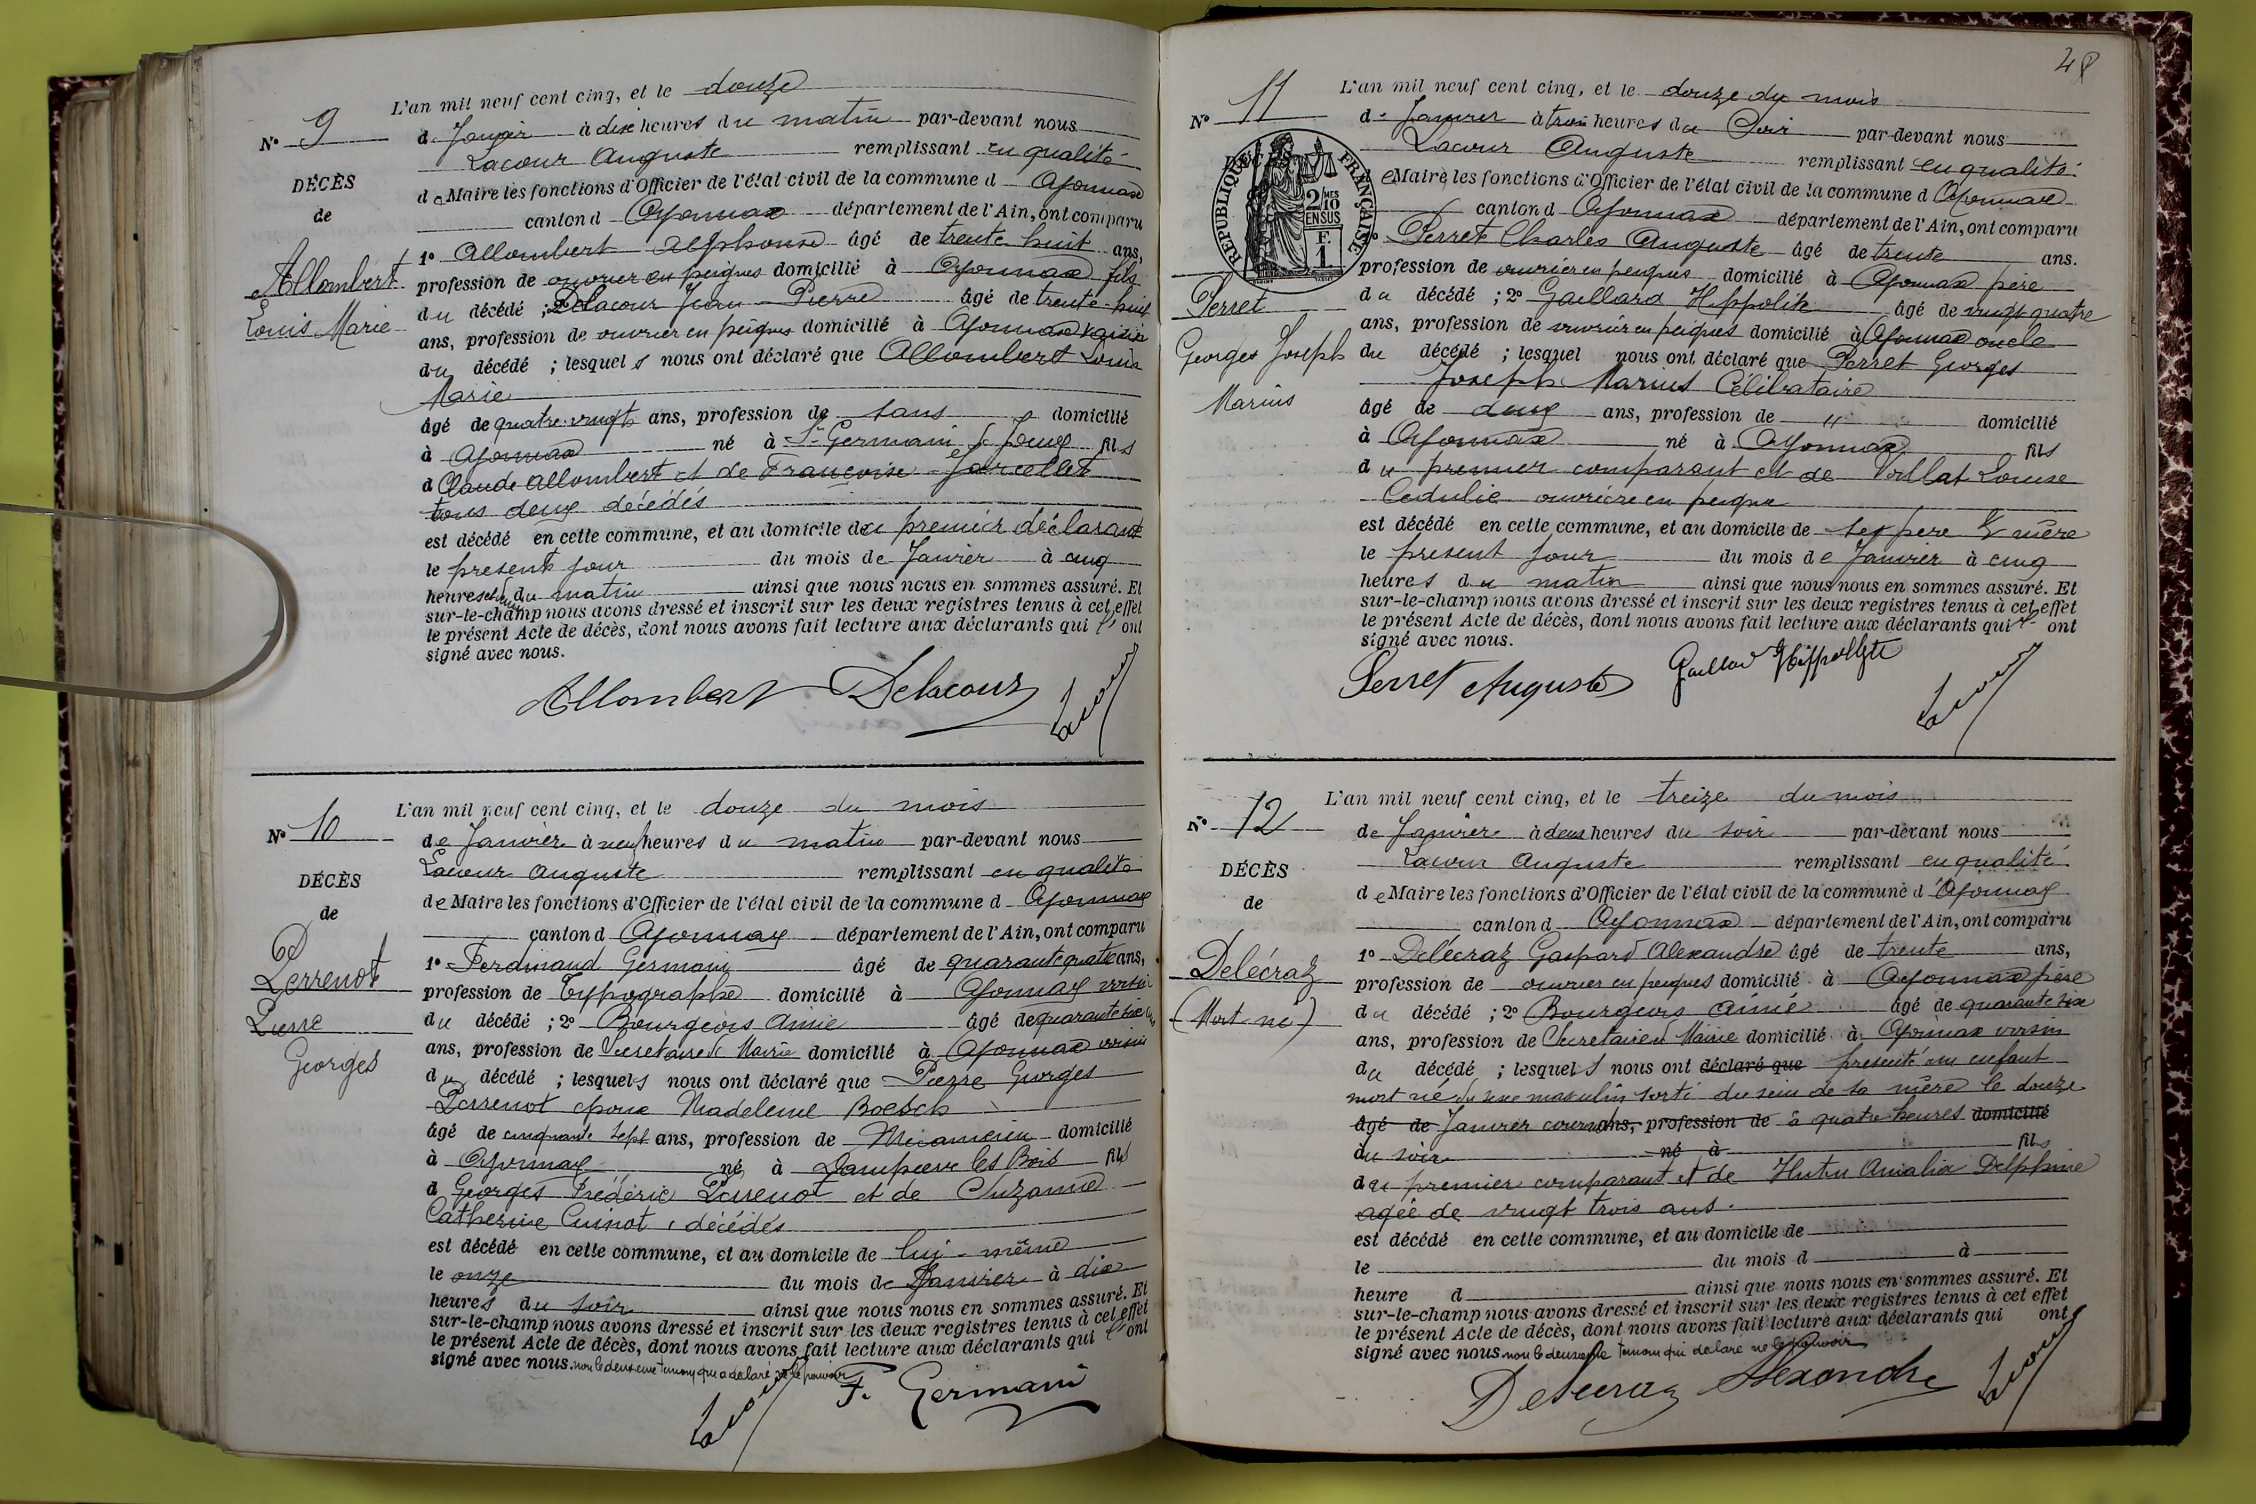 L'an mil neuf cent cinq, et le douze
N° 9
de Janvier à dix heures du matin par-devant nous
Lacour Auguste remplissant en qualité
DÉCÈS
de Maire les fonctions d'Officier de l'état civil de la commune d Oyonnax
de
canton d Oyonnax département de l'Ain, ont comparu
1° Allombert Alphonse âgé de trente huit ans,
Allombert
profession de ouvrier en peignes domicilié à Oyonnax fils
Louis Marie
du décédé ; 2° Delacour Jean Pierre âgé de trente-huit
ans, profession de ouvrier en peignes domicilié à Oyonnax voisin
du décédé ; lesquels nous ont déclaré que Allombert Louis
Marie
âgé de quatre-vingts ans, profession de sans domicilié
à Oyonnax né à St Germain de Joux fils
d Claude Allombert et de Françoise
tous deux décédés
est décédé en cette commune, et au domicile du premier déclarant
le présent jour du mois de Janvier à cinq
heures du matin ainsi que nous nous en sommes assuré. Et
sur-le-champ nous avons dressé et inscrit sur les deux registres tenus à cet effet
le présent Acte de décès, dont nous avons fait lecture aux déclarants qui l' ont
signé avec nous.
Allombert Delacour Lacour
L'an mil neuf cent cinq, et le douze du mois
N° 10
de Janvier à neuf heures du matin par-devant nous
Lacour Auguste remplissant en qualité
DÉCÈS
de Maire les fonctions d'Officier de l'état civil de la commune d Oyonnax
de
canton d Oyonnax département de l'Ain, ont comparu
1° Ferdinand Germain âgé de quarante quatre ans,
Perrenot
profession de Typographe domicilié à Oyonnax voisin
Pierre
du décédé ; 2° Bourgeois Aimé âgé de quarante six
Georges
ans, profession de Secretaire de Mairie domicilié à Oyonnax voisin
du décédé ; lesquels nous ont déclaré que Pierre Georges
Perrenot époux Madeleine Boesch
âgé de cinquante sept ans, profession de Mécanicien domicilié
à Oyonnax né à Dampierre les Bois fils
d Georges Frédéric Perrenot et de Suzanne
Catherine Cuinot, décédés
est décédé en cette commune, et au domicile de lui-même
le onze du mois de Janvier à dix
heures du soir ainsi que nous nous en sommes assuré. Et
sur-le-champ nous avons dressé et inscrit sur les deux registres tenus à cet effet
le présent Acte de décès, dont nous avons fait lecture aux déclarants qui l' ont
signé avec nous. non le deuxieme temoin qui a declaré ne le pouvoir
F. Germain
Lacour
48
L'an mil neuf cent cinq, et le douze du mois
N° 11
de Janvier à trois heures du Soir par-devant nous
Lacour Auguste remplissant en qualité
de Maire les fonctions d'Officier de l'état civil de la commune d Oyonnax
RÉPUBLIQUE FRANÇAISE
2/10 EN SUS
F. 1
canton d Oyonnax département de l'Ain, ont comparu
Perret Charles Auguste âgé de trente ans.
profession de ouvrier en peignes domicilié à Oyonnax père
Perret
du décédé ; 2° Gaillard Hippolite âgé de vingt quatre
ans, profession de ouvrier en peignes domicilié à Oyonnax oncle
Georges Joseph
du décédé ; lesquel nous ont déclaré que Perret Georges
Joseph Marius Célibataire
Marius
âgé de deux ans, profession de " domicilié
à Oyonnax né à Oyonnax fils
du premier comparant et de Louise
ouvrière en peigne
est décédé en cette commune, et au domicile de ses père & mère
le présent jour du mois de Janvier à cinq
heures du matin ainsi que nous nous en sommes assuré. Et
sur-le-champ nous avons dressé et inscrit sur les deux registres tenus à cet effet
le présent Acte de décès, dont nous avons fait lecture aux déclarants qui l' ont
signé avec nous.
Perret Auguste Gaillard Hippolyte Lacour
L'an mil neuf cent cinq, et le treize du mois
N° 12
de Janvier à deux heures du soir par-devant nous
Lacour Auguste remplissant en qualité
DÉCÈS
de Maire les fonctions d'Officier de l'état civil de la commune d Oyonnax
de
canton d Oyonnax département de l'Ain, ont comparu
1° Delécraz Gaspard Alexandre âgé de trente ans,
Delécraz
profession de ouvrier en peignes domicilié à Oyonnax père
(Mort né)
du décédé ; 2° Bourgeois Aimé âgé de quarante six
ans, profession de Secretaire de Mairie domicilié à Oyonnax voisin
du décédé ; lesquels nous ont déclaré que présenté un enfant
mort né du sexe masculin sorti du sein de sa mère le douze
âgé de Janvier courant ans, profession de à quatre heures domicilié
du soir né à fils
du premier comparant et de Amalia Delphine
agée de vingt trois ans.
est décédé en cette commune, et au domicile de
le du mois d à
heure d ainsi que nous nous en sommes assuré. Et
sur-le-champ nous avons dressé et inscrit sur les deux registres tenus à cet effet
le présent Acte de décès, dont nous avons fait lecture aux déclarants qui ont
signé avec nous non le deuxieme temoin qui declare ne le pouvoir
Delecraz Alexandre Lacour